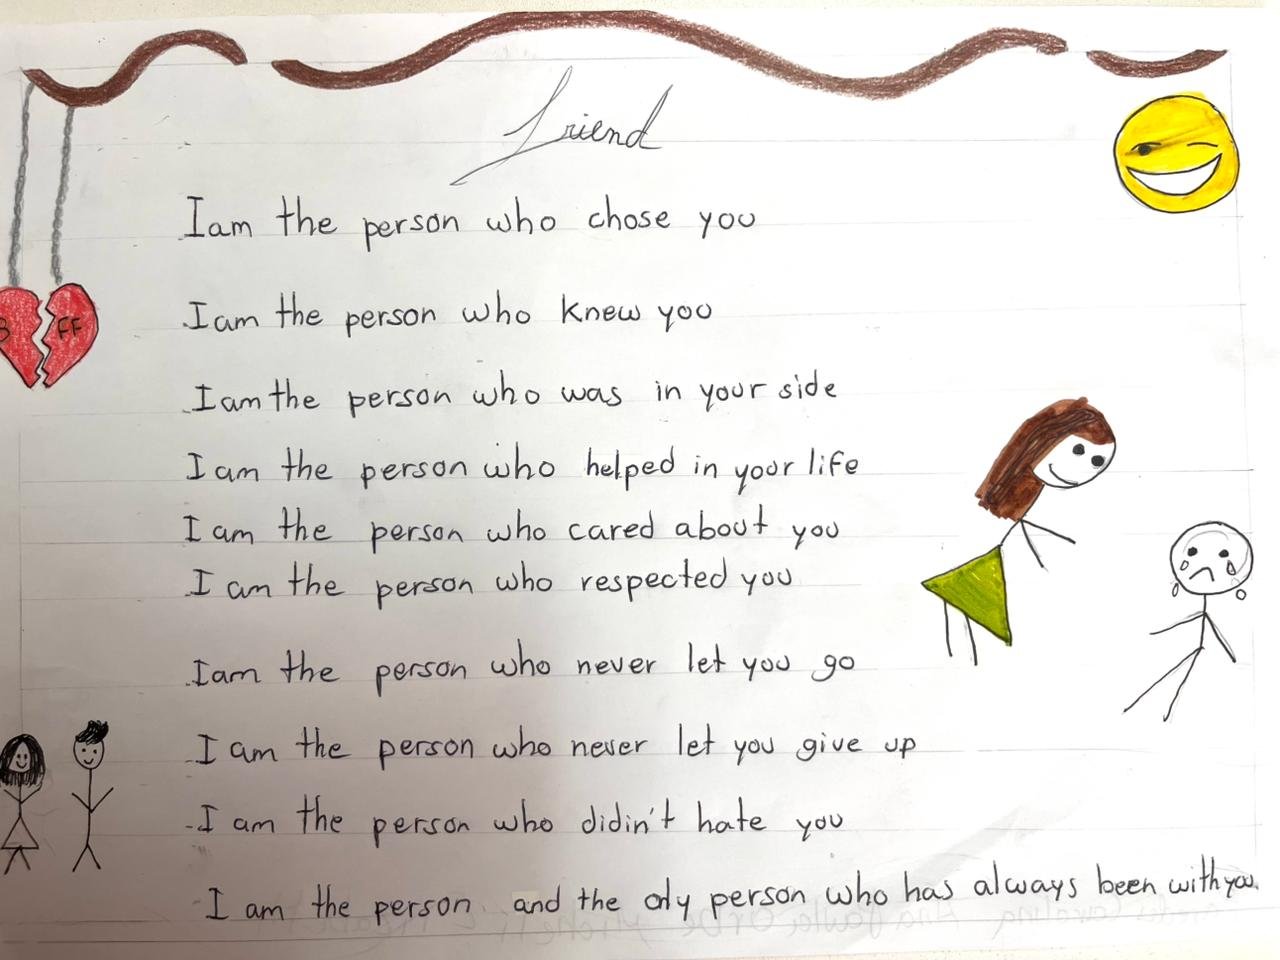 Friend
I am the person who chose you
B FF
I am the person who knew you
I am the person who was in your side
I am the person who helped in your life
I am the person who cared about you
I am the person who respected you
I am the person who never let you go
I am the person who never let you give up
I am the person who didin't hate you
I am the person and the only person who has always been with you.